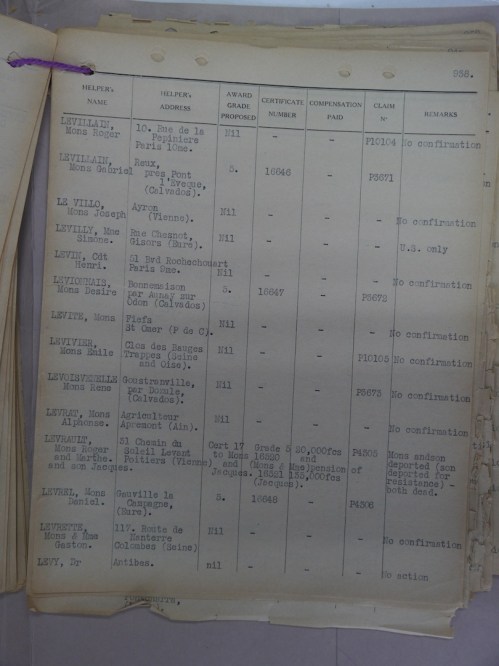 958.
HELPER'S NAME HELPER'S ADDRESS AWARD GRADE PROPOSED CERTIFICATE NUMBER COMPENSATION PAID CLAIM No REMARKS
LEVILLAIN, 10. Rue de la Nil - -
Mons Roger Pepiniere P10104 No confirmation
Paris 10me.
LEVILLAIN, Reux, 5. 16646 -
Mons Gabriel pres Pont P3671
l'Eveque,
(Calvados).
LE VILLO, Ayron Nil - - -
Mons Joseph (Vienne). No confirmation
LEVILLY, Mme Rue Chesnot, Nil - - -
Simone. Gisors (Eure). U.S. only
LEVIN, Cdt 61 Bvd Rochechouart
Henri. Paris 9me. Nil - - - No confirmation
LEVIONNAIS, Bonnemaison 5. 16647 -
Mons Desire par Aunay sur P3672
Odon (Calvados)
LEVITE, Mons Fiefs Nil - - -
St Omer (P de C). No confirmation
LEVIVIER, Clos des Nil - -
Mons Emile Trappes (Seine P10105 No confirmation
and Oise).
Goustranville, Nil - -
Mons Rene par Dozule, P3673 No confirmation
(Calvados).
LEVRAT, Mons Agriculteur Nil - - -
Alphonse. Apremont (Ain). No confirmation
LEVRAULT, 51 Chemin du Cert 17 Grade 5 20,000fcs P4305 Mons andson
Mons Roger Soleil Levant to Mons 16320 and deported (son
and Marthe. Poitiers (Vienne) and (Mons & Mme) pension of deported for
and son Jacques. Jacques. 16321 135,000fcs resistance) -
(Jacques). both dead.
LEVREL, Mons Gauville la 5. 16648 -
Daniel. Campagne, P4306
(Eure).
117. Route de Nil - - -
Mons & Mme Nanterre
Gaston. Colombes (Seine) No confirmation
LEVY, Dr Antibes. nil - - -
No action